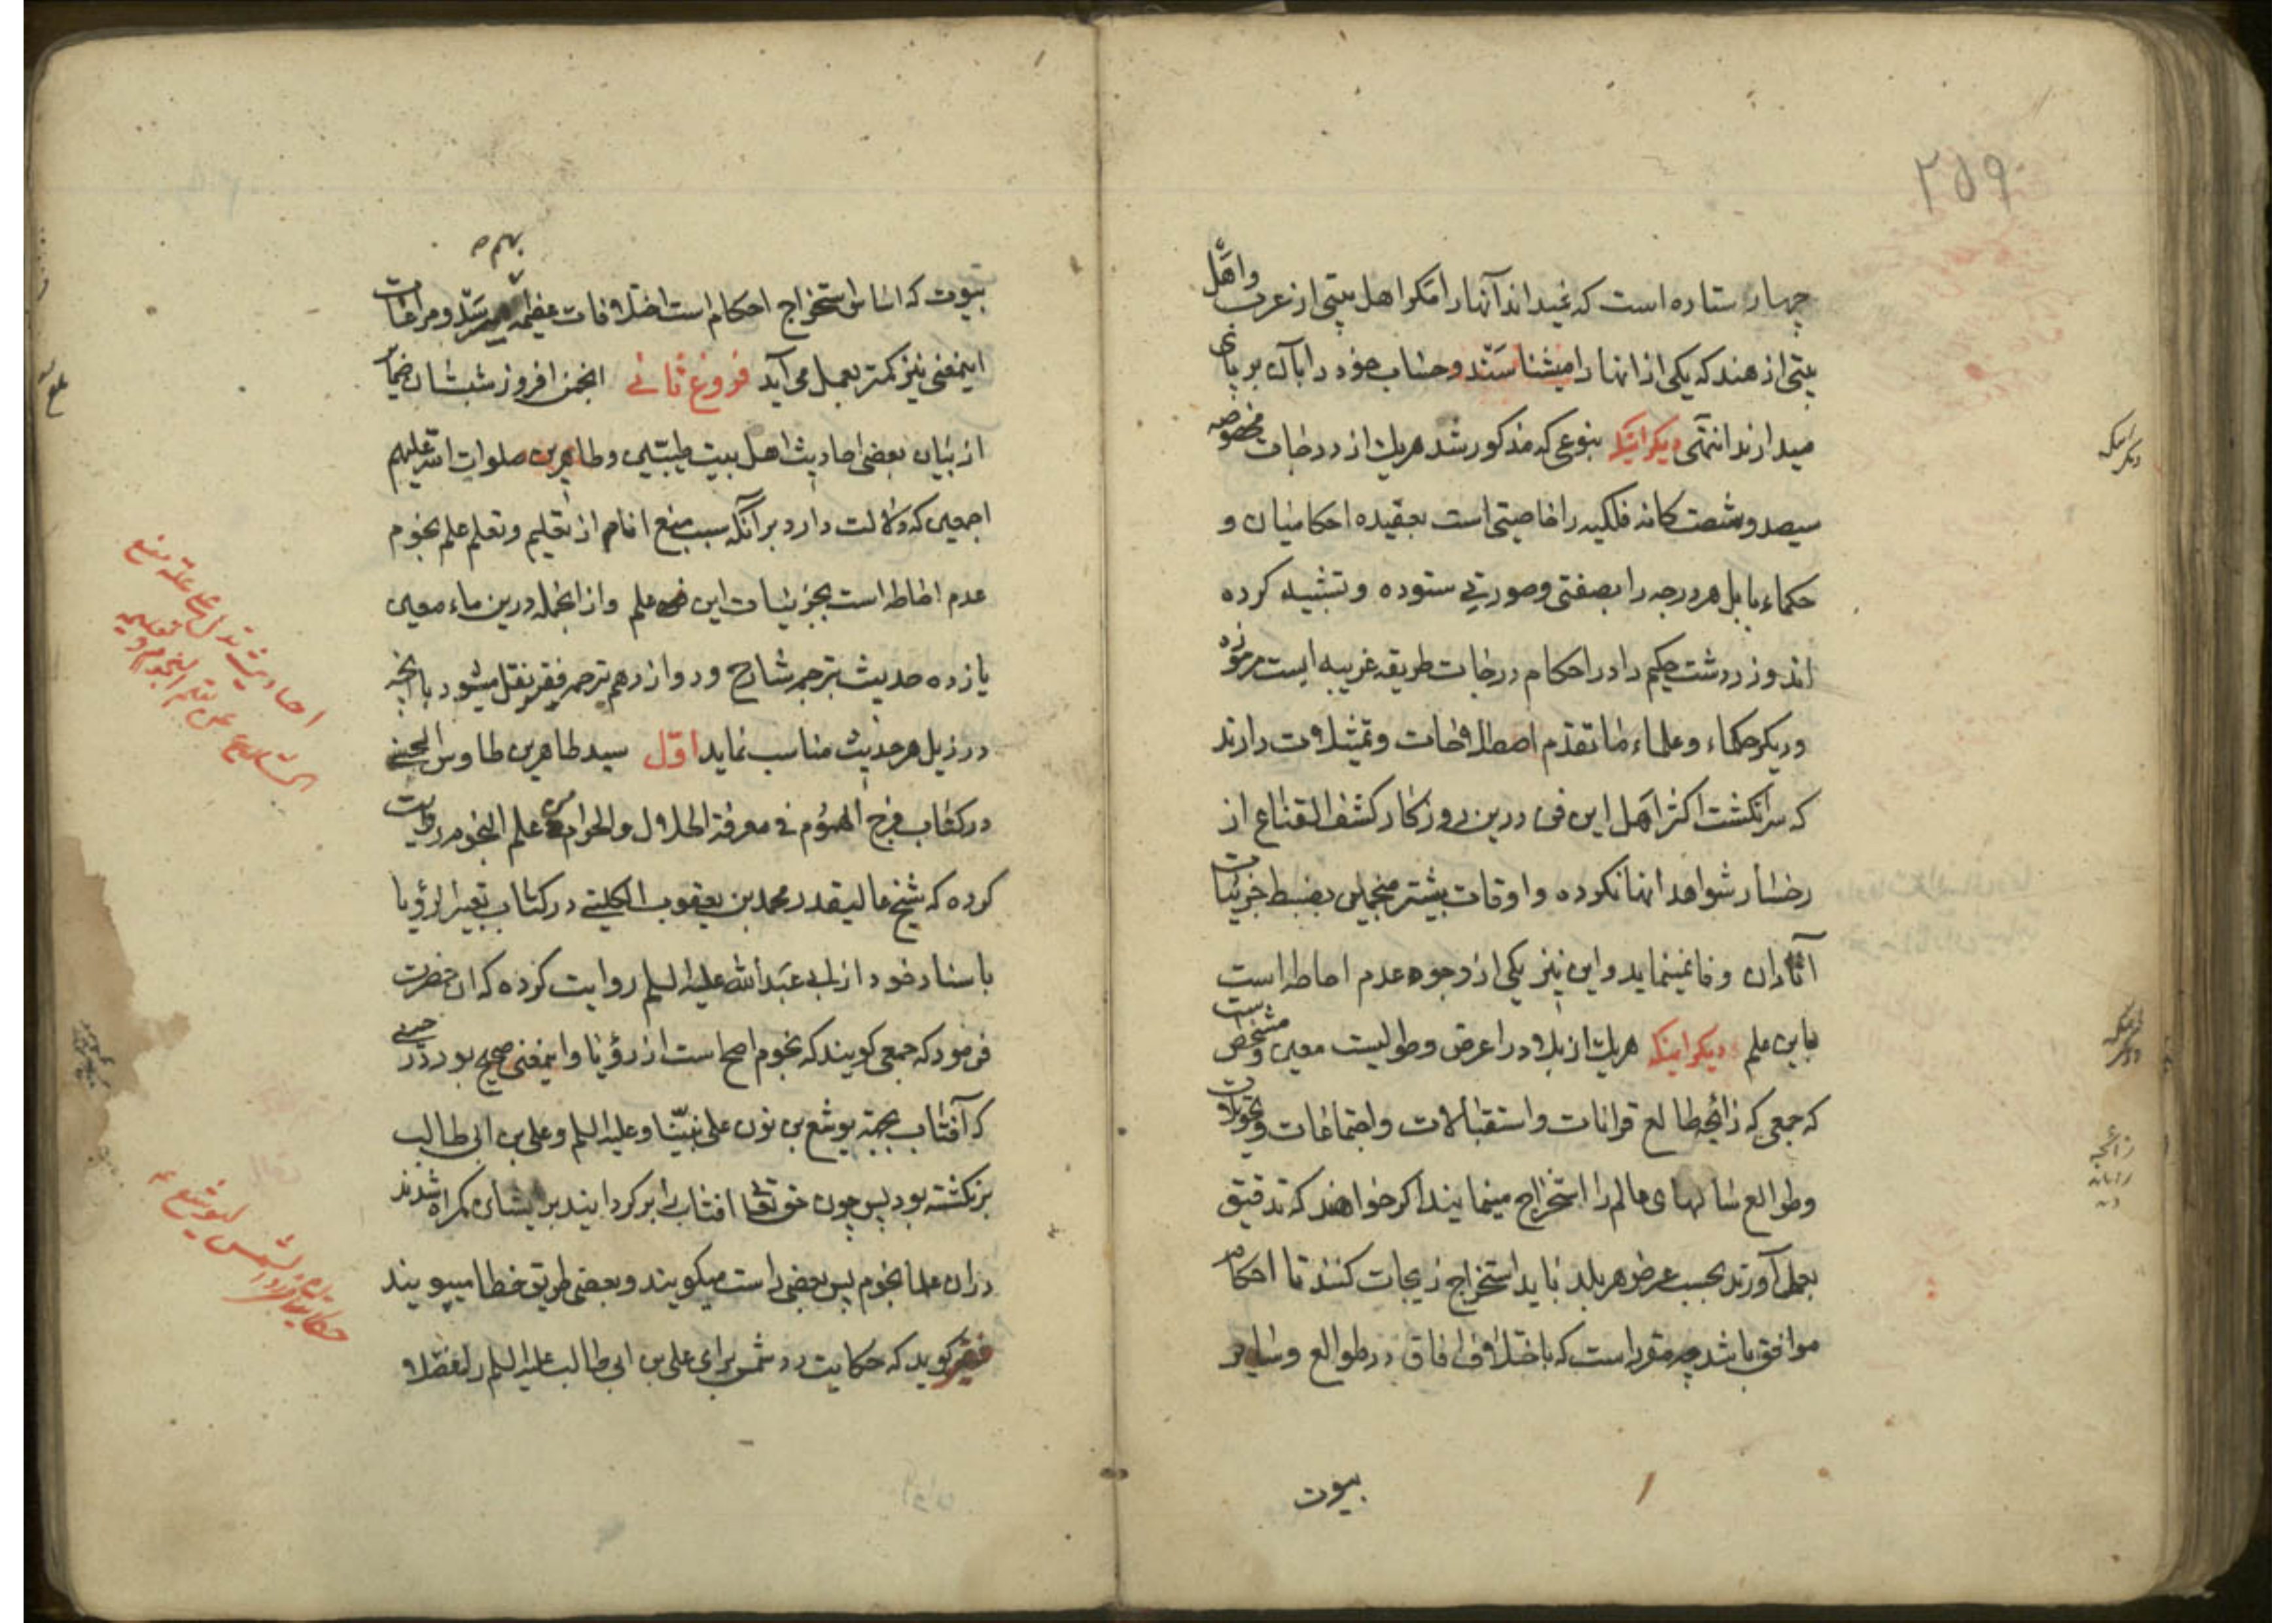 ۲۵۹
چهار ستاره است که نمیداند آنها را مگر اهل بیتی از عرب و اهل
بیتی از هند که یکی از انها را میشناسند و حساب خود را بآن بر پای
میدارند انتهی دیکر اینکه بنوعی که مذکور شد هریک از درجات مخصوصه
سیصد و شصت کانه فلکیه را خاصیتی است بعقیده احکامیان و
حکماء بابل هر درجه را بصفتی و صورتی ستوده و تشبیه کرده
اند و زردشت حکیم را در احکام درجات طریقه غریبه ایست مرموزه
و دیکر حکماء و علماء ما تقدم اصطلاحات و تمثیلات دارند
که سرانکشت اکثر اهل این فن درین روزکار کشف القناع از
رخسار شواهد انها نکرده و اوقات بیشتر منجمین بضبط جزئیات
آثار ان وفا نمینماید و این نیز یکی از وجوه عدم احاطه است
باین علم دیکر اینکه هریک از بلاد را عرض و طولیست معین و مشخص است
که جمعی که زایجه طالع قرانات و استقبالات و اجتماعات و تحویلات
و طوالع سالهای عالم را استخراج مینمایند اکر خواهند که تدقیق
بعمل آورند بحسب عرض هر بلد باید استخراج زیجات کنند تا احکام
موافق باشد چه مقرر است که باختلاف افاق در طوالع و سایر
بیوت
دیکر اینکه
زائجه
بهم ص
بیوت که اساس استخراج احکام است اختلافات عظیمه میرسد و مراعات
اینمعنی نیز کمتر بعمل می آید فروغ ثانی انجمن افروز شبستان ضمایر
از بیان بعضی احادیث اهل بیت طیبین و طاهرین صلوات الله علیهم
اجمعین که دلالت دارد بر آنکه سبب منع انام از تعلیم و تعلم علم نجوم
عدم احاطه است بجزئیات این علم و از انجمله درین ماء معین
یازده حدیث بترجمه شارح و دوازدهم بترجمه فقیر نقل میشود با انچه
در ذیل هر حدیث مناسب نماید اول سید طاهر بن طاوس الحسنی
در کتاب فرج الهموم فی معرفة الحلال و الحرام من علم النجوم روایت
کرده که شیخ عالیقدر محمد بن یعقوب الکلینی در کتاب تعبیر الرؤیا
باسناد خود از ابی عبد الله علیه السلم روایت کرده که ان حضرت
فرمود که جمعی کویند که نجوم اصح است از رؤیا و اینمعنی صحیح بود در حینی
که آفتاب بجهة یوشع بن نون علی نبینا و علیه السلم و علی بن ابی طالب
برنکشته بود پس چون حق تعا افتاب را بر کردانید بر ایشان کمراه شدند
در ان علما نجوم پس بعضی راست میکویند و بعضی طریق خطا میپویند
فقیر کوید که حکایت رد شمس برای علی بن ابی طالب علیه السلم را فضلا
احادیث تدل علی علة منع
الشارع عن تعلم النجوم و تعلیمه
حکایة رد الشمس لیوشع ع